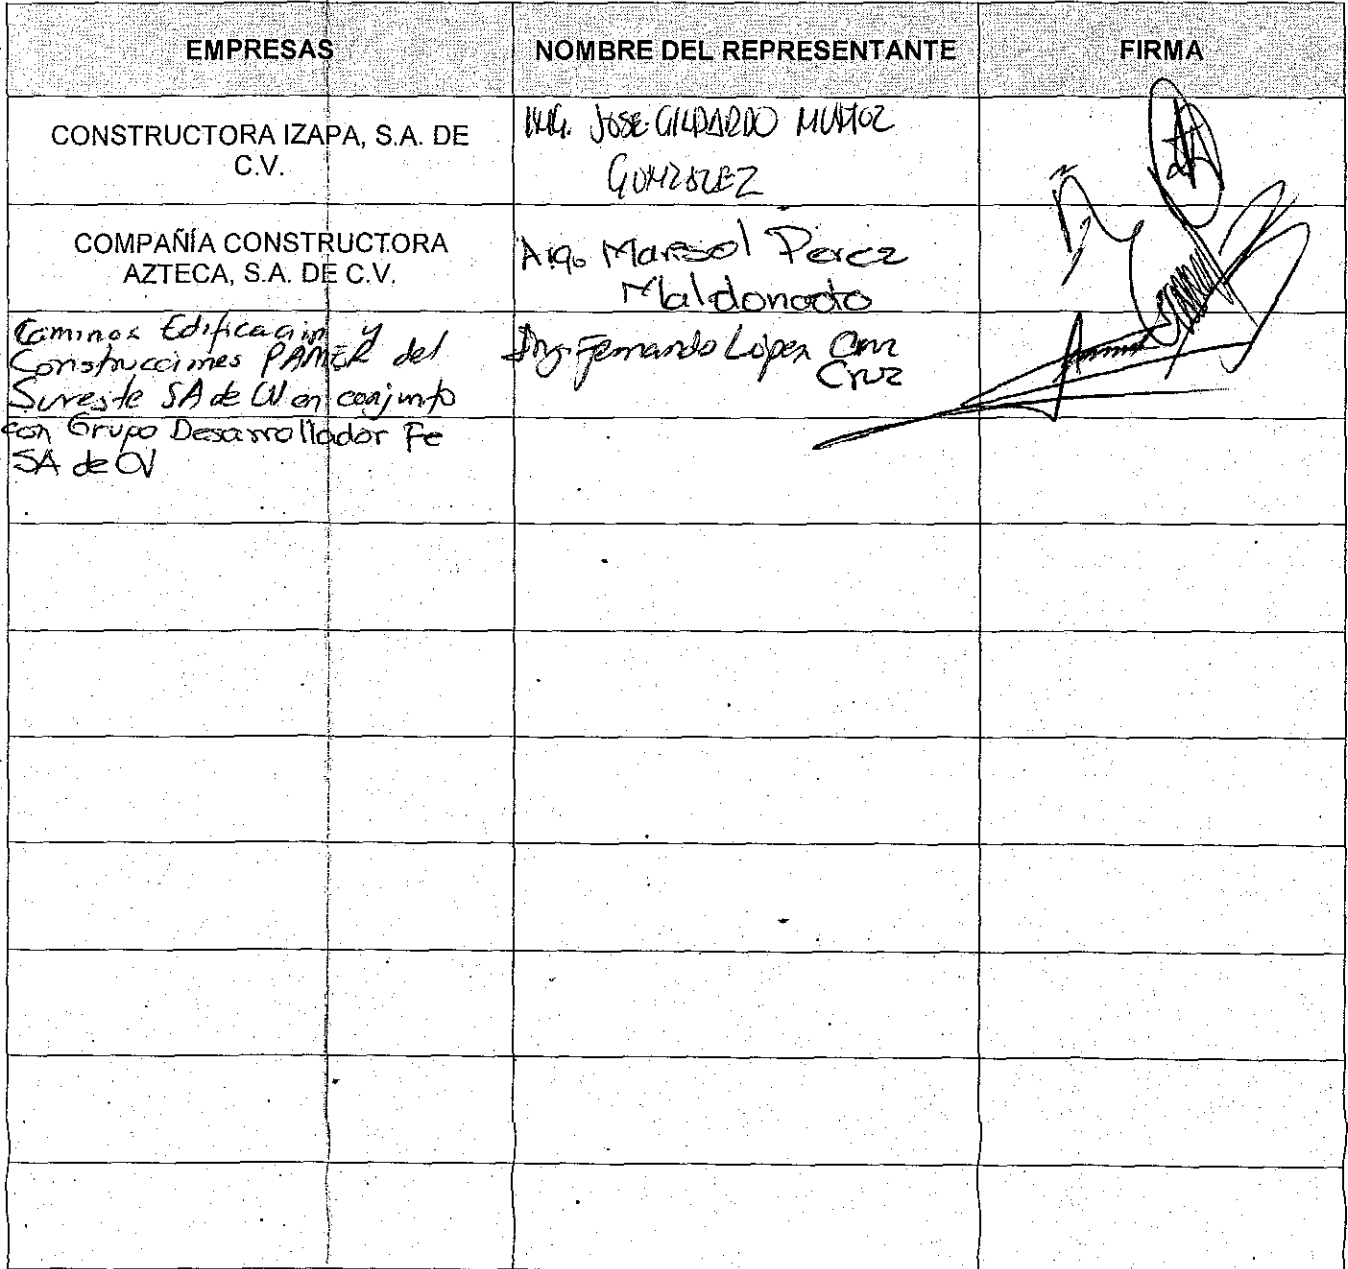 EMPRESAS
NOMBRE DEL REPRESENTANTE
FIRMA
CONSTRUCTORA IZAPA, S.A. DE
C.V.
ING. JOSE GILDARDO MUÑOZ
GONZALEZ
COMPAÑÍA CONSTRUCTORA
AZTECA, S.A. DE C.V.
Arq. Marisol Perez
Maldonado
Caminos Edificación y
Construcciones PAMER del
Sureste SA de CV en conjunto
con Grupo Desarrollador Fe
SA de CV
Ing. Fernando López
Cruz